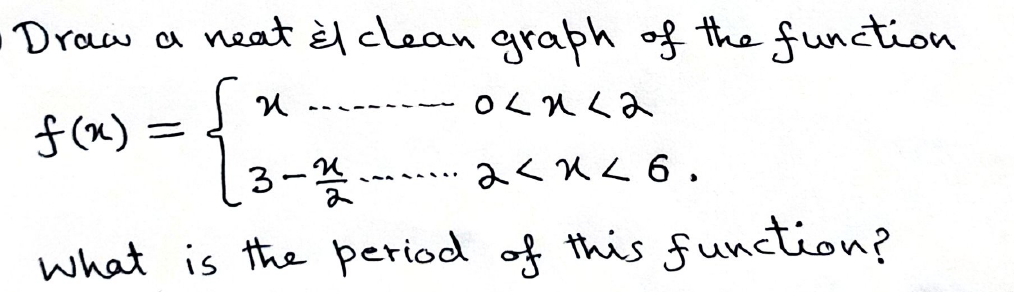 Draw a neat & clean graph of the function
f(x) = { x ---------- 0<x<2
3-x/2 ........ 2<x<6.
What is the period of this function?